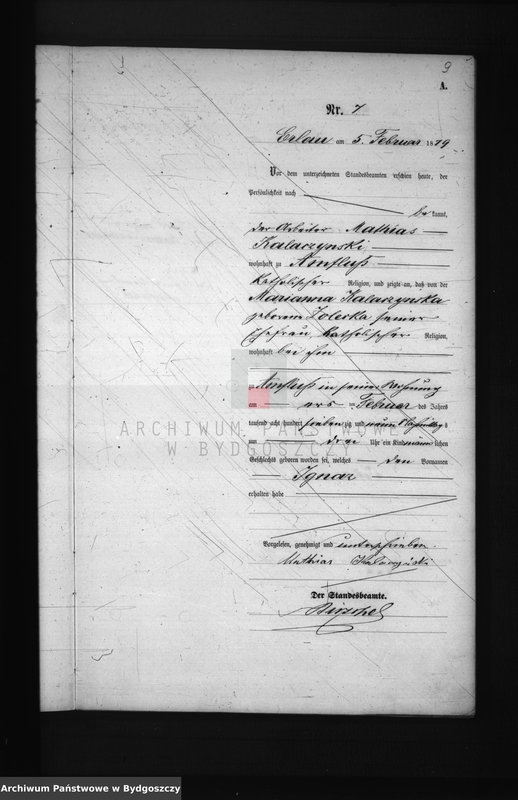 9
A.
Nr. 7
Erlau am 5. Februar 1879
Vor dem unterzeichneten Standesbeamten erschien heute, der
Persönlichkeit nach
be kannt,
der Arbeiter Mathias
Kalaczynski
wohnhaft zu Amfluß
katholischer Religion, und zeigte an, daß von der
Marianna Kalaczynska
geborenen Zolecka seiner
Ehefrau katholischer Religion,
wohnhaft bei ihm
zu Amfluß in seiner Wohnung
am Februar des Jahres
tausend acht hundert sieben zig und neun
um drei Uhr ein Kind männ lichen
Geschlechts geboren worden sei, welches den Vornamen
Ignaz
erhalten habe
Vorgelesen, genehmigt und unterschrieben
Mathias
Der Standesbeamte.
ARCHIWUM PAŃSTWOWE
W BYDGOSZCZY
Archiwum Państwowe w Bydgoszczy